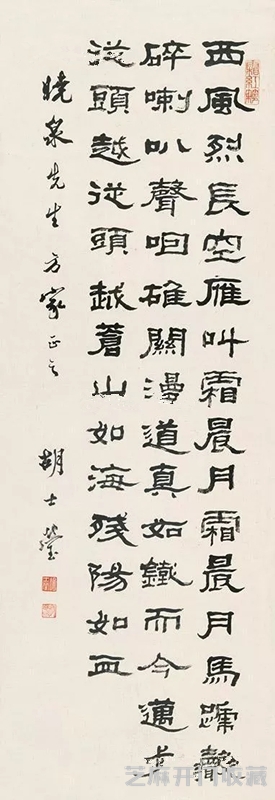 霜紅簃
西風烈長空雁叫霜晨月霜晨月馬蹄聲
碎喇叭聲咽雄關漫道真如鐵而今邁步
從頭越從頭越蒼山如海殘陽如血
曉泉先生方家正之
胡士瑩
芝麻开门收藏